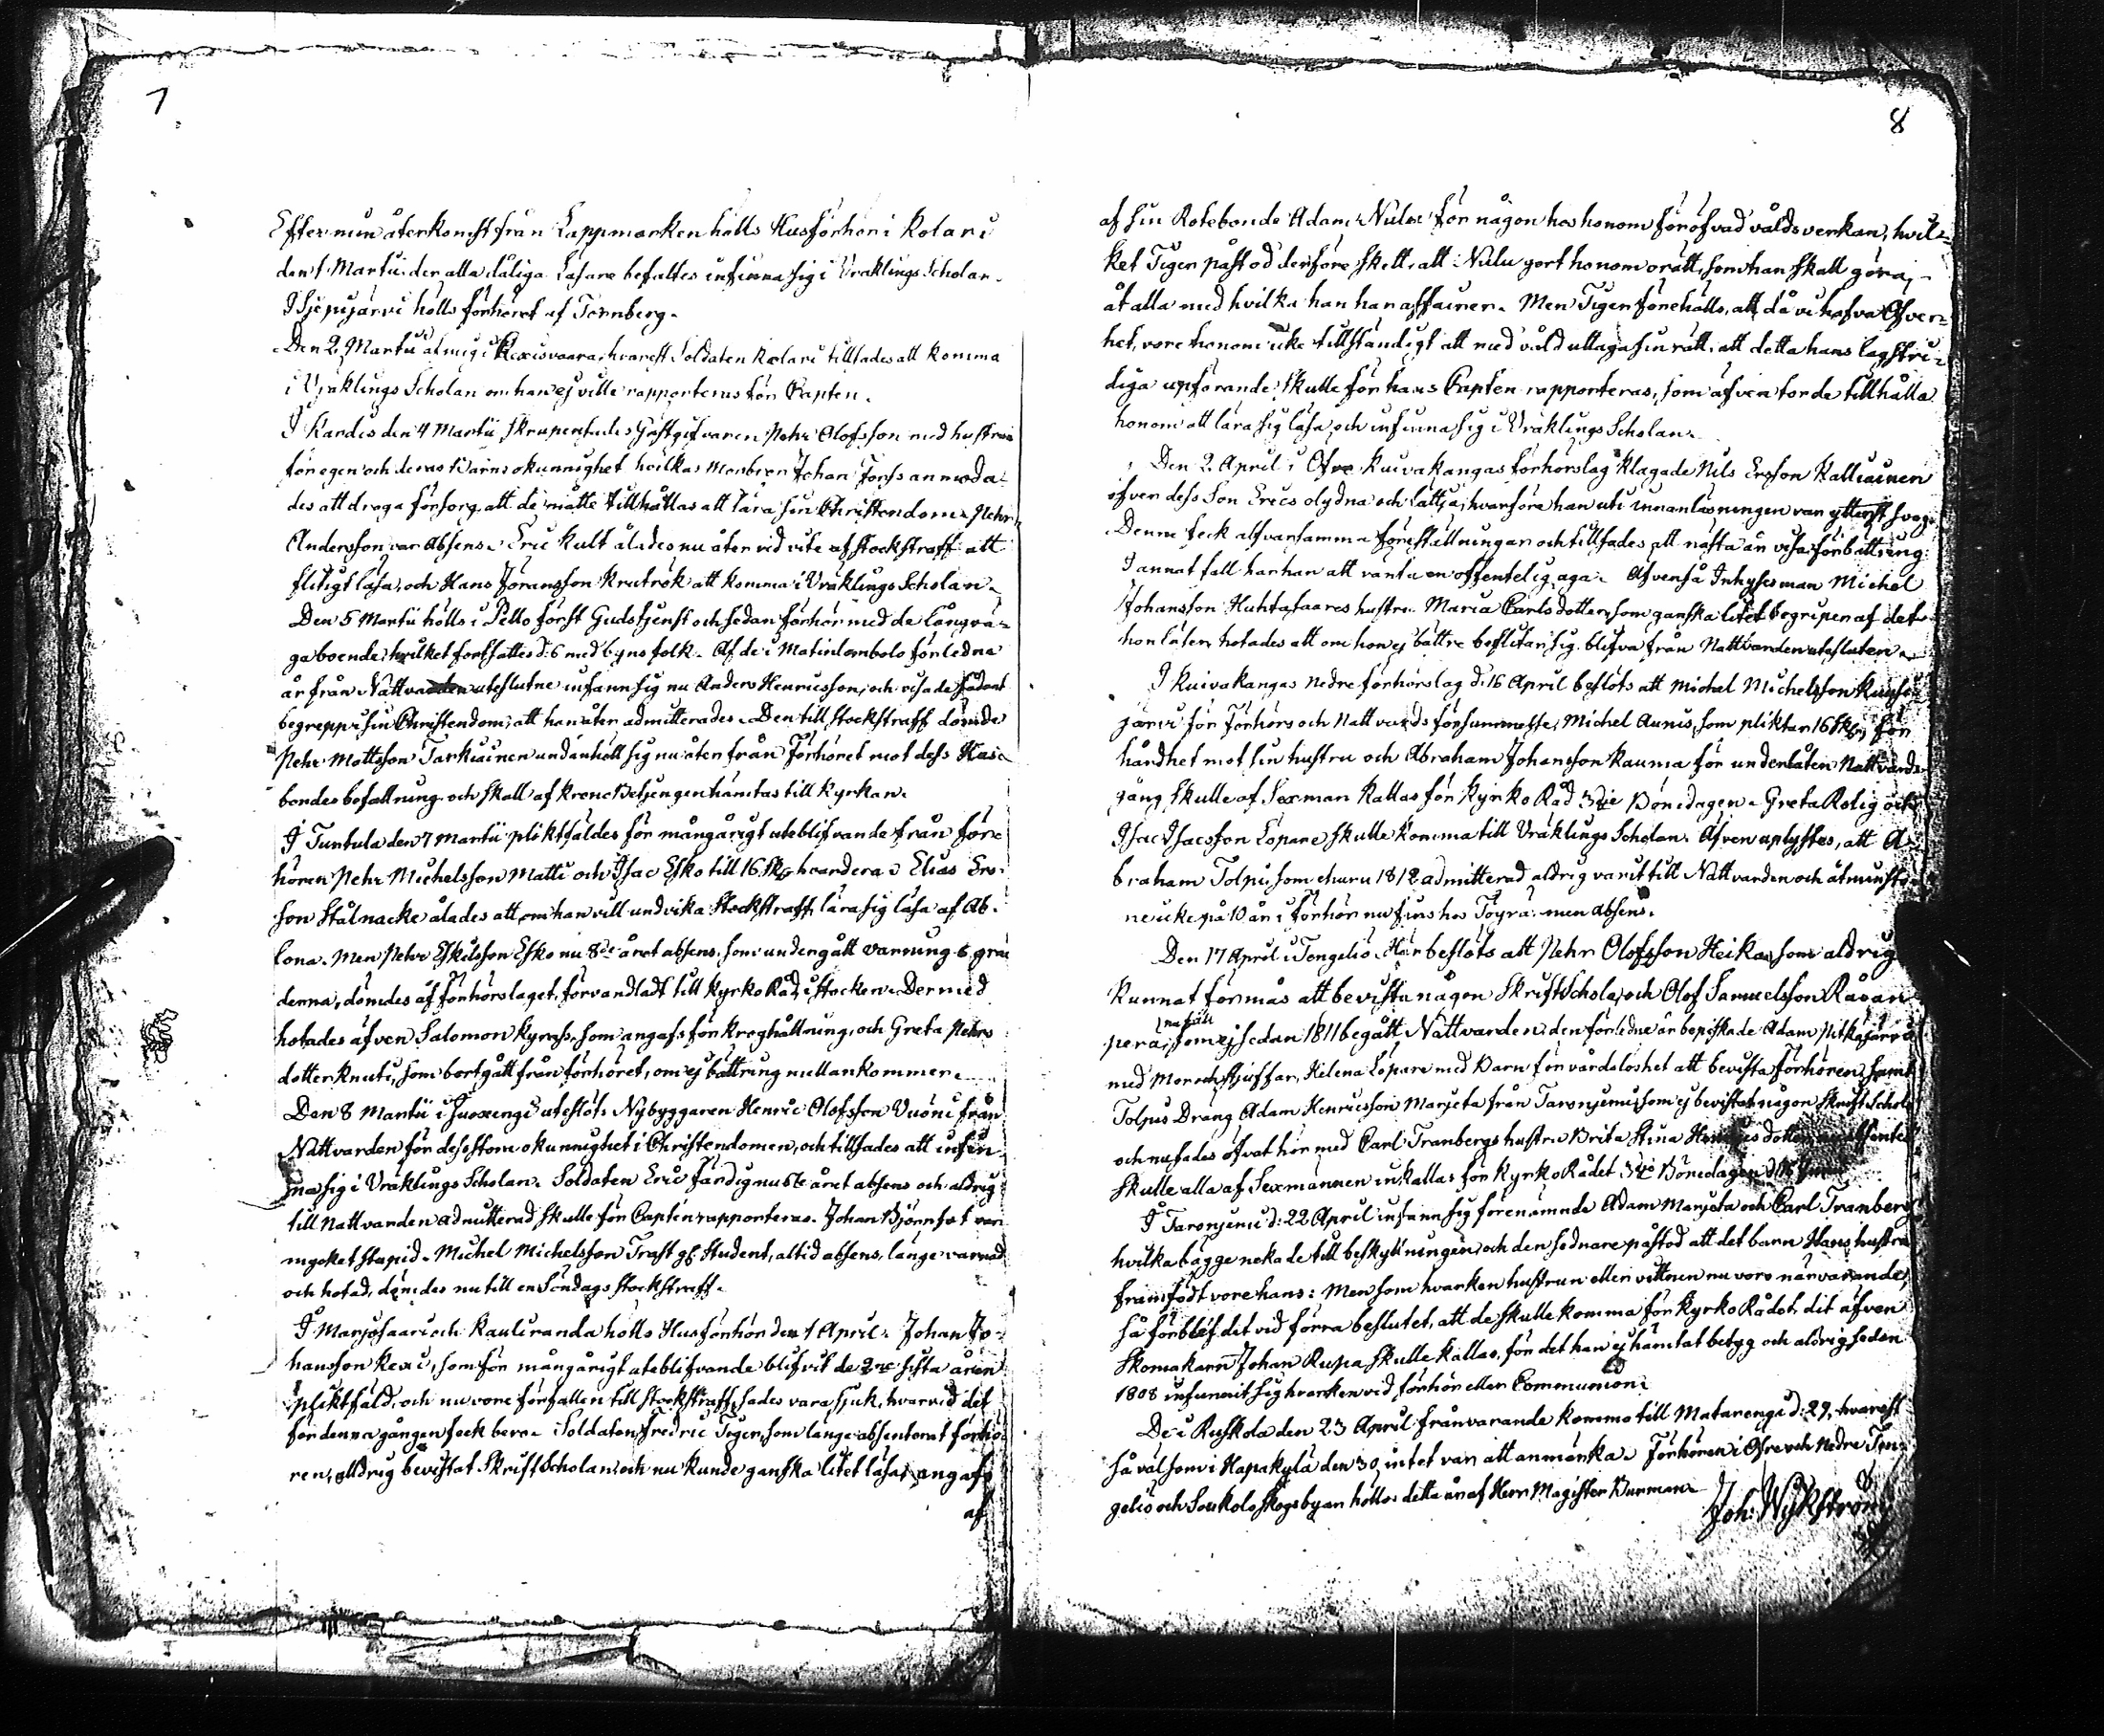 7
Efter min återkomst från Lappmarken hölls Husförhör i Kolari
den 1 Martii der alla dåliga Läsare befaltes infinna sig i Uraklings Scholan.
I Sjepijärvi hölls förhöret af Törnberg.
Den 2 Martii af mig i Kexisvaara, hvarest Soldaten Kolari tillsades att komma
i Uraklings Scholan om han ej ville rapporteras för Capten.
I Kardis den 4 Martii skrupensades Gästgifvaren Pehr Olofsson med hustru
för egen och deras Barns okunnighet hvilkas Morbror Johan Forss anmoda-
des att draga försorg att de måtte tillhållas att lära sin Christendom. Pehr
Andersson var absens. Eric Kult ålades nu åter vid vite af stockstraff att
flitigt läsa, och Hans Joransson Krutrök att komma i Uraklings Scholan.
Den 5 Martii hölls i Pello först Gudstjenst och sedan förhör med de långvä-
ga boende, hvilket fortsattes d: 6 med byns folk. Af de i Matinlombolo förledne
år från Nattvarden uteslutne infann sig nu Anders Henricsson, och visade sådant
begrepp i sin Christendom, att han åter admitterades. Den till stockstraff dömde
Pehr Mattsson Tarkiainen undanhöll sig nu åter från Förhöret mot dess Hus-
bondes befallning och skall af Krono Betjeningen hämtas till Kyrkan.
I Turtula den 7 Martii pliktfäldes för mångårigt uteblifvande från För-
hören Pehr Michelsson Matti och Isac Esko till 16 sk hvardera. Elias Ers-
son Stålnacke ålades att, om han vill undvika Stockstraff, lära sig läsa af Ab-
lona. Men Pehr Eskilsson Esko nu 8de året absens, som undergått varning
denna, dömdes af förhörslaget, förvandladt till Kyrko Råd, i Stocken. Dermed
hotades äfven Salomon Kyrö, som angafs för Kroghållning, och Greta Pehrs
dotter Knuti, som bortgått från förhöret, om ej bättring mellankommer.
Den 8 Martii i Juoxengi uteslöts Nybyggaren Henric Olofsson Vuoni från
Nattvarden för dess stora okunnighet i Christendomen, och tillsades att infin-
na sig i Uraklings Scholan. Soldaten Eric Färdig nu 5te året absens och aldrig
till Nattvarden admitterad skulle för Capten rapporteras. Johan Björnfot var
mycket stupid. Michel Michelsson Trast gl. Student, altid absens, länge varnad
och hotad, dömdes nu till en Söndags Stockstraff.
I Marjosaari och Kauliranda hölls Husförhör den 1 April. Johan Jo-
hansson Kexi, som för mångårigt uteblifvande blifvit de 2ne sista åren
pliktfäld, och nu vore förfallen till Stockstraff, sades vara sjuk, hvarvid det
för denna gången feck bero. Soldaten Fredric Tiger, som länge absenterat förhö-
ren, aldrig bevistat Skrift Scholan, och nu kunde ganska litet läsa, angafs
af
8
af sin Rotebonde Adam Nulu för någon hos honom föröfvad våldsverkan, hvil-
ket Tiger påstod derföre skett, att Nulu gort honom orätt, som han skall göra,
åt alla med hvilka han har affairer. Men Tiger förehölls, att då vi hafva Öfver-
het, vore honom icke tillständigt att med våld uttaga sin rätt, att detta hans lagstri-
diga upförande skulle för hans Capten rapporteras, som äfven torde tillhålla
honom att lära sig läsa, och infinna sig i Uraklings Scholan.
Den 2 April i Öfre Kuivakangas förhörslag klagade Nils Ersson Kalliainen
öfver dess Son Erics olydna och lättja, hvarföre han uti innanläsningen var ytterst svag.
Denne feck alfvarsamma föreställningar och tillsades att nästa år visa förbättring.
I annat fall har han att vänta en offentelig aga. Äfvenså Inhyses man Michel
Johansson Huhtasaares hustru Maria Carlsdotter, som ganska litet begriper af det
hon läser, hotades att om hon ej bättre beflitar sig, blifva från Nattvarden utesluten.
I Kuivakangas nedre förhörslag d: 16 April beslöts att Michel Michelsson
järvi för Förhörs och Nattvards försummelse, Michel Aunis, som pliktar 16 sk, för
hårdhet mot sin hustru och Abraham Johansson Rauma för underlåten Nattvards-
gång skulle af Sexman kallas för Kyrko Råd 3die Bönedagen. Greta Rolig och
Isac Isacsson Lopare skulle komma till Uraklings Scholan. Äfven uplystes, att A-
braham Tolpi, som ehuru 1812 admitterad aldrig varit till Nattvarden och åtminsto-
ne icke på 10 år i förhör nu fins hos Töyrä, men absens.
Den 17 April i Tengeliö. Här beslöts att Pehr Olofsson Heika, som aldrig
kunnat förmås att bevista någon Skrift Schola, och Olof Samuelsson Råvan
perä, som ej sedan 1811 begått Nattvarden, den förledne år bepiskade Adam Pitkäjärvi
med Mor och Stjuffar, Helena Lopare med Barn för vårdslöshet att bevista förhören, samt
Tolpis Dräng Adam Henricsson Marjeta från Taronjemi, som ej bevistat någon Skrift Schola
och nu sades öfvat hor med Carl Tranbergs hustru Brita Stina
skulle alla af Sexmannen inkallas för Kyrko Rådet 3die Bönedagen
I Taronjemi d: 22 April infann sig förenämnde Adam Marjeta och Carl Tranberg,
hvilka bägge nekade till beskyllningen, och den sednare påstod att det barn Hans hustru
framfödt vore hans: Men som hvarken hustrun eller vittnen nu voro närvarande,
så förblef det vid förra beslutet, att de skulle komma för Kyrko Rådet, dit äfven
Skomakarn Johan Rupa skulle kallas, för det han ej hämtat betyg och aldrig sedan
1808 infunnit sig hvarken vid förhör eller Communion.
De i Ruskola den 23 April frånvarande kommo till Matarengi d: 29, hvarest
så väl som i Hapakylä den 30, intet var att anmärka. Förhören i Öfre och Nedre Ten-
geliö och Soukolo Skogsbyar höllos detta år af Herr Magister Burman.
Joh: Wykström